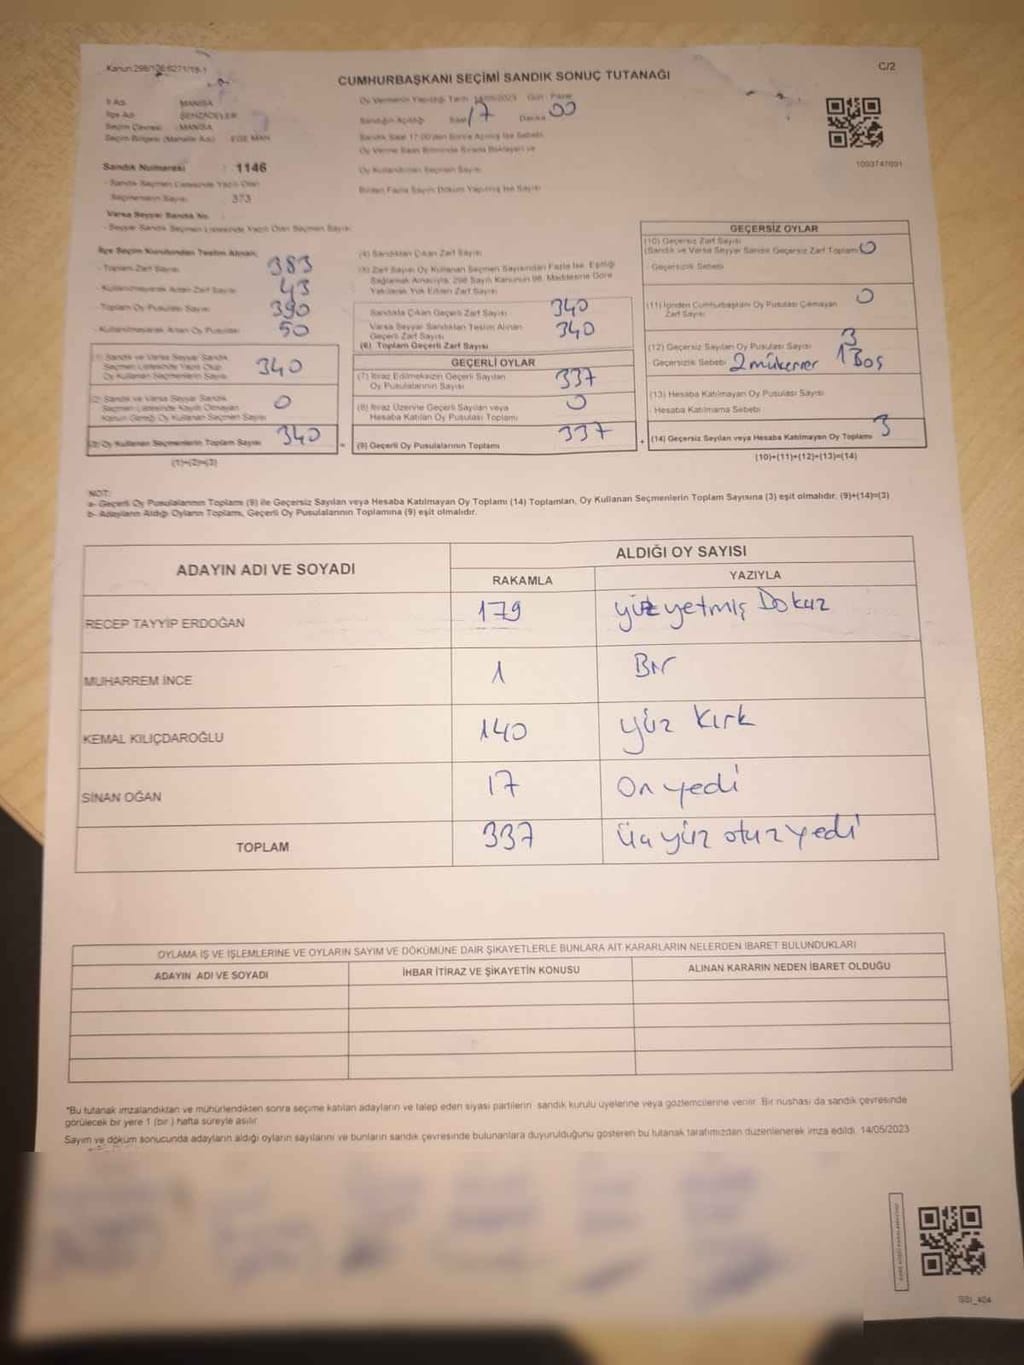 Kanun:298/106;6271/19-1
C/2
CUMHURBAŞKANI SEÇİMİ SANDIK SONUÇ TUTANAĞI
İl Adı MANİSA
Oy Vermenin Yapıldığı Tarih 14/05/2023 Gün: Pazar
İlçe Adı ŞEHZADELER
Sandığın Açıldığı Saat 17 Dakika 00
Seçim Çevresi MANİSA
Seçim Bölgesi (Mahalle Adı)
Sandık Saat 17:00'den Sonra Açılmış İse Sebebi
1003747691
Sandık Numarası : 1146
Oy Kullandırılan Seçmen Sayısı
- Sandık Seçmen Listesinde Yazılı Olan
Seçmenlerin Sayısı 373
Birden Fazla Sayım Döküm Yapılmış İse Sayısı
Varsa Seyyar Sandık No
- Seyyar Sandık Seçmen Listesinde Yazılı Olan Seçmen Sayısı
İlçe Seçim Kurulundan Teslim Alınan;
- Toplam Zarf Sayısı 383
- Kullanılmayarak Artan Zarf Sayısı 43
Toplam Oy Pusulası Sayısı 390
- Kullanılmayarak Artan Oy Pusulası 50
(1) Sandık ve Varsa Seyyar Sandık
Seçmen Listesinde Yazılı Olup
Oy Kullanan Seçmenlerin Sayısı 340
(2) Sandık ve Varsa Seyyar Sandık
Seçmen Listesinde Kayıtlı Olmayan
Kanun Gereği Oy Kullanan Seçmen Sayısı 0
(3) Oy Kullanan Seçmenlerin Toplam Sayısı 340
(1)+(2)=(3)
(4) Sandıktan Çıkan Zarf Sayısı
(5) Zarf Sayısı Oy Kullanan Seçmen Sayısından Fazla İse, Eşitliği
Sağlamak Amacıyla, 298 Sayılı Kanunun 98. Maddesine Göre
Yakılarak Yok Edilen Zarf Sayısı
Sandıkta Çıkan Geçerli Zarf Sayısı 340
Varsa Seyyar Sandıktan Teslim Alınan
Geçerli Zarf Sayısı
(6) Toplam Geçerli Zarf Sayısı 340
GEÇERLİ OYLAR
(7) İtiraz Edilmeksizin Geçerli Sayılan
Oy Pusulalarının Sayısı 337
(8) İtiraz Üzerine Geçerli Sayılan veya
Hesaba Katılan Oy Pusulası Toplamı 0
(9) Geçerli Oy Pusulalarının Toplamı 337
GEÇERSİZ OYLAR
(10) Geçersiz Zarf Sayısı
(Sandık ve Varsa Seyyar Sandık Geçersiz Zarf Toplamı) 0
- Geçersizlik Sebebi
(11) İçinden Cumhurbaşkanı Oy Pusulası Çıkmayan
Zarf Sayısı 0
(12) Geçersiz Sayılan Oy Pusulası Sayısı 3
- Geçersizlik Sebebi 2 mükerrer 1 Boş
(13) Hesaba Katılmayan Oy Pusulası Sayısı
- Hesaba Katılmama Sebebi
(14) Geçersiz Sayılan veya Hesaba Katılmayan Oy Toplamı 3
(10)+(11)+(12)+(13)=(14)
NOT:
a- Geçerli Oy Pusulalarının Toplamı (9) ile Geçersiz Sayılan veya Hesaba Katılmayan Oy Toplamı (14) Toplamları, Oy Kullanan Seçmenlerin Toplam Sayısına (3) eşit olmalıdır. (9)+(14)=(3)
b- Adayların Aldığı Oyların Toplamı, Geçerli Oy Pusulalarının Toplamına (9) eşit olmalıdır.
ADAYIN ADI VE SOYADI
ALDIĞI OY SAYISI
RAKAMLA YAZIYLA
RECEP TAYYİP ERDOĞAN 179 yüz yetmiş Dokuz
MUHARREM İNCE 1 Bir
KEMAL KILIÇDAROĞLU 140 yüz Kırk
SİNAN OĞAN 17 On yedi
TOPLAM 337 üç yüz otuz yedi
OYLAMA İŞ VE İŞLEMLERİNE VE OYLARIN SAYIM VE DÖKÜMÜNE DAİR ŞİKAYETLERLE BUNLARA AİT KARARLARIN NELERDEN İBARET BULUNDUKLARI
ADAYIN ADI VE SOYADI İHBAR İTİRAZ VE ŞİKAYETİN KONUSU ALINAN KARARIN NEDEN İBARET OLDUĞU
*Bu tutanak imzalandıktan ve mühürlendikten sonra seçime katılan adayların ve talep eden siyasi partilerin sandık kurulu üyelerine veya gözlemcilerine verilir. Bir nüshası da sandık çevresinde
görülecek bir yere 1 (bir) hafta süreyle asılır.
Sayım ve döküm sonucunda adayların aldığı oyların sayılarını ve bunların sandık çevresinde bulunanlara duyurulduğunu gösteren bu tutanak tarafımızdan düzenlenerek imza edildi. 14/05/2023